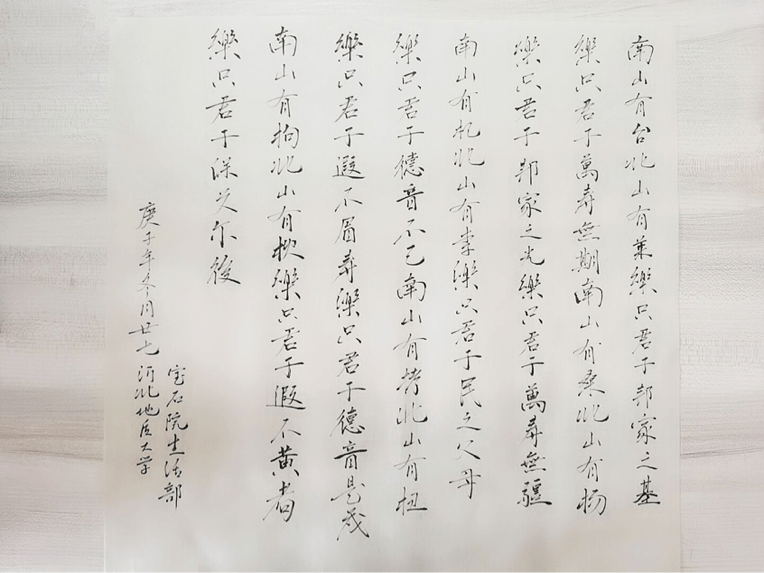 南山有台北山有莱樂只君子邦家之基
樂只君子萬寿無期南山有桑北山有杨
樂只君子邦家之光樂只君子萬寿無疆
南山有杞北山有李樂只君子民之父母
樂只君子德音不已南山有栲北山有杻
樂只君子遐不眉寿樂只君子德音是茂
南山有枸北山有楰樂只君子遐不黄耇
樂只君子保艾尔後
庚子年冬月廿七
宝石院生活部
河北地质大学